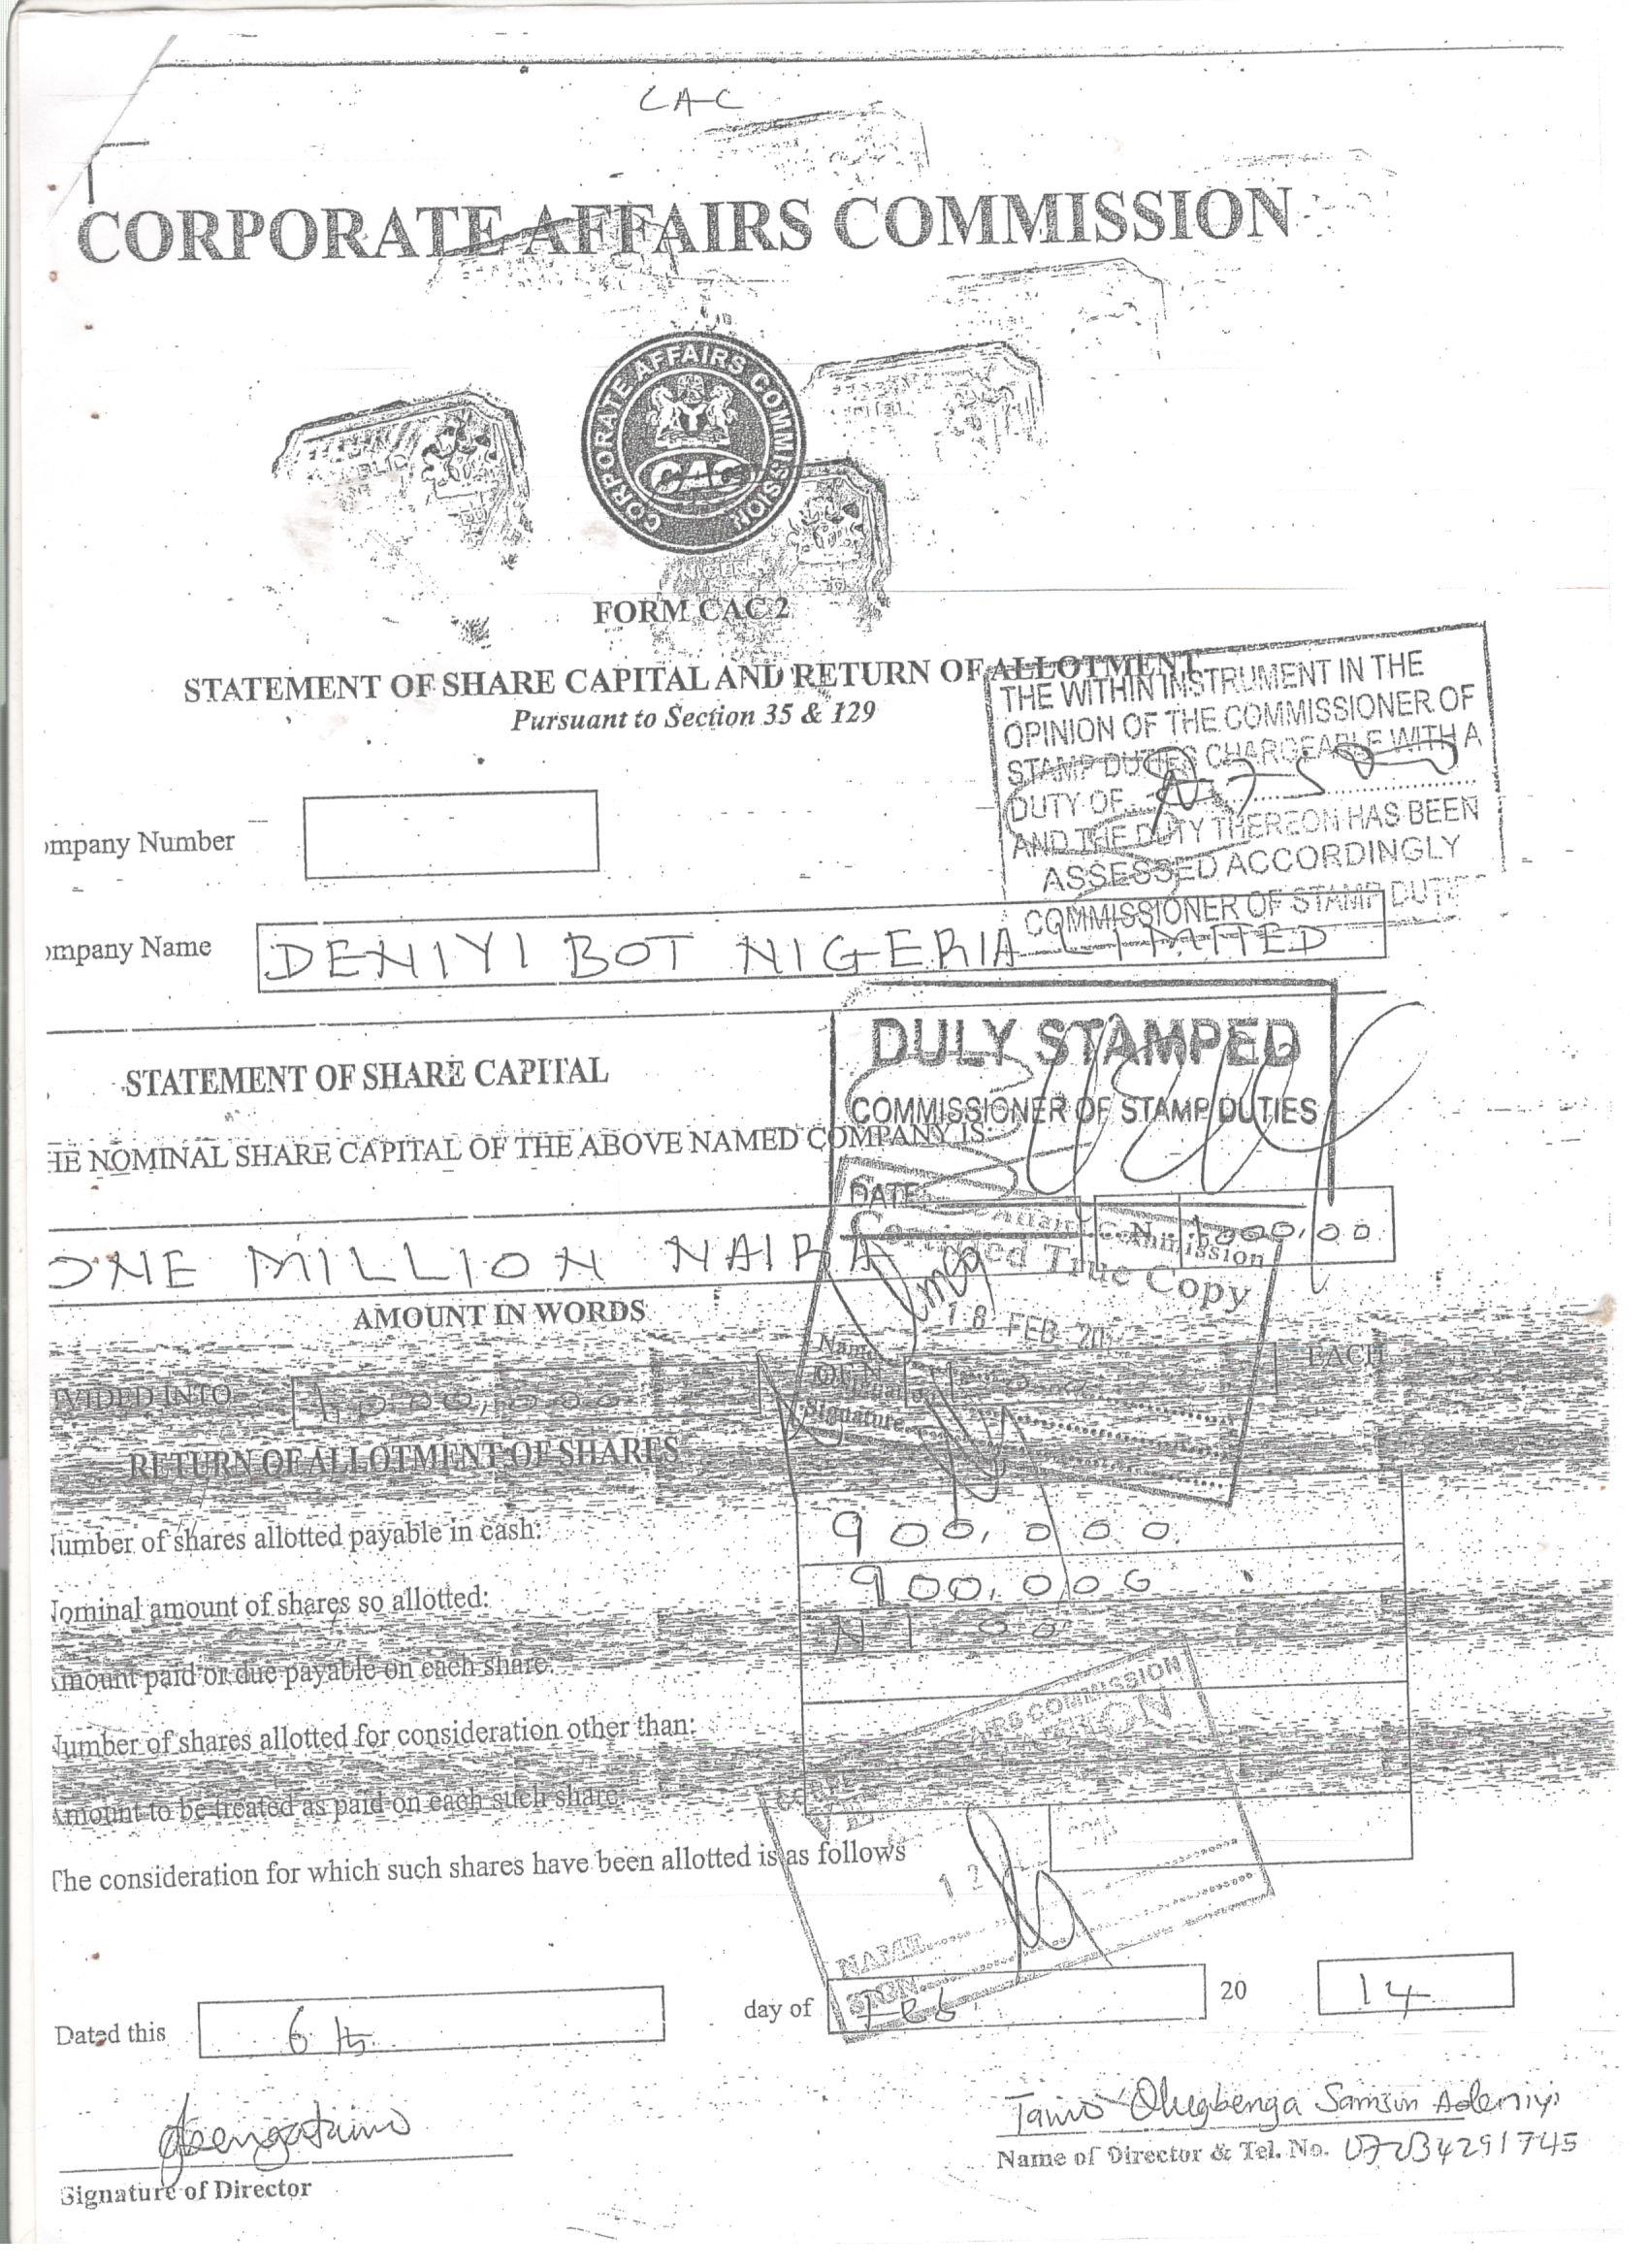 CAC
CORPORATE AFFAIRS COMMISSION
CORPORATE AFFAIRS COMMISSION
CAC
FORM CAC 2
STATEMENT OF SHARE CAPITAL AND RETURN OF ALLOTMENT
Pursuant to Section 35 & 129
THE WITHIN INSTRUMENT IN THE
OPINION OF THE COMMISSIONER OF
STAMP DUTIES CHARGEABLE WITH A
DUTY OF
AND THE DUTY THEREON HAS BEEN
ASSESSED ACCORDINGLY
COMMISSIONER OF STAMP DUTIES
ompany Number
ompany Name DENIYI BOT NIGERIA LIMITED
DULY STAMPED
COMMISSIONER OF STAMP DUTIES
DATE:
STATEMENT OF SHARE CAPITAL
HE NOMINAL SHARE CAPITAL OF THE ABOVE NAMED COMPANY IS:
ONE MILLION NAIRA
AMOUNT IN WORDS
Commission
Certified True Copy
18 FEB
Name
Signature
VIDED INTO 1,000,000 EACH
RETURN OF ALLOTMENT OF SHARES
Number of shares allotted payable in cash: 900,000
Nominal amount of shares so allotted: 900,000
Amount paid or due payable on each share:
Number of shares allotted for consideration other than:
Amount to be treated as paid on each such share:
The consideration for which such shares have been allotted is as follows
COMMISSION
12
NAME
SIGN
Dated this 6th day of Feb 20 14
Signature of Director
Taiwo Olugbenga Samson Adeniyi
Name of Director & Tel. No.